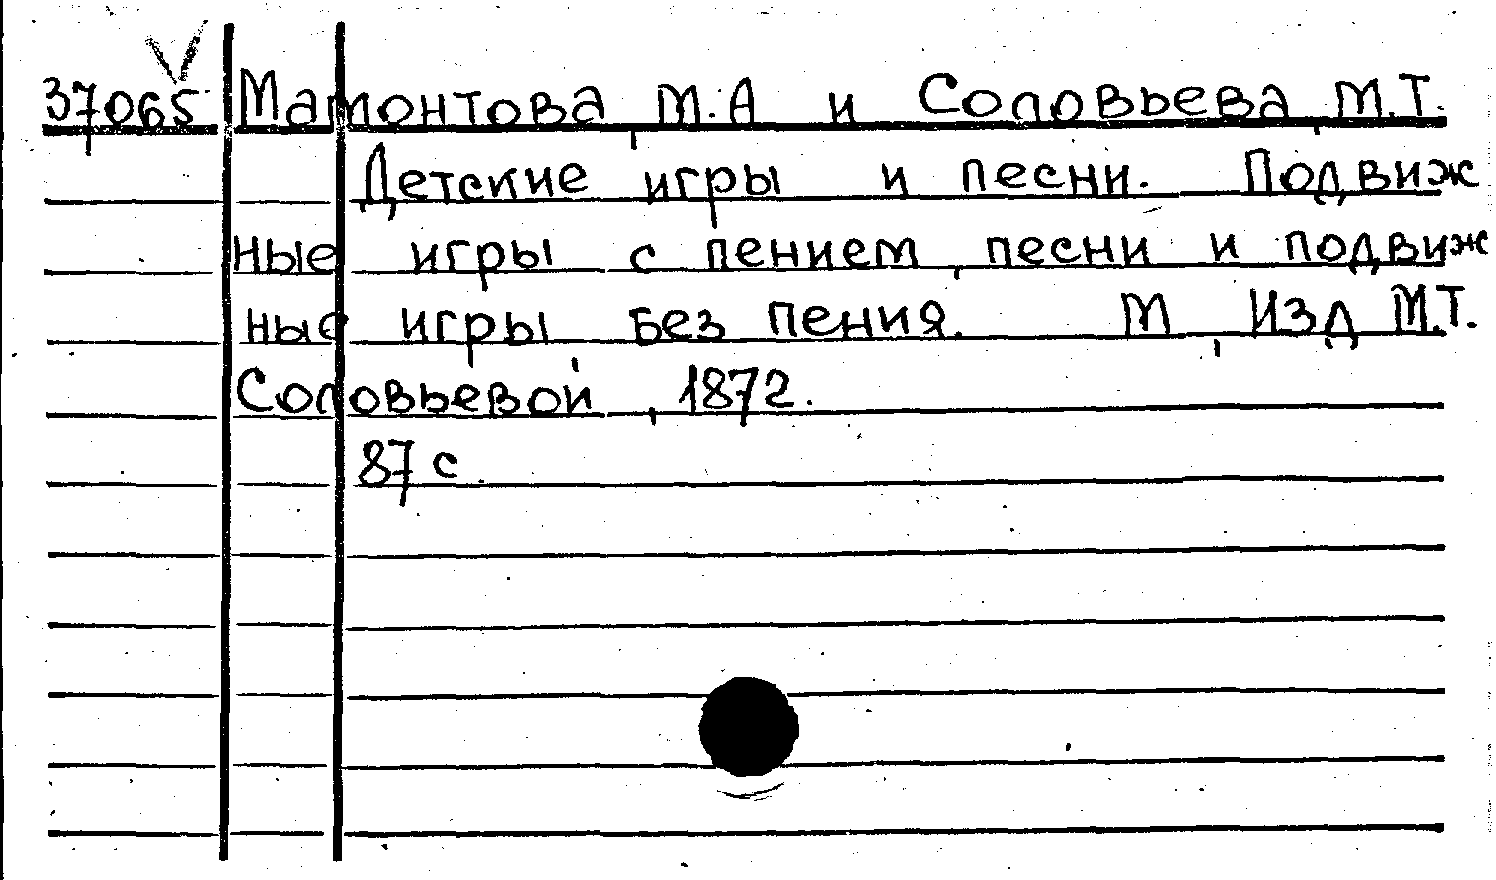 37065 Мамонтова, М.А и Соловьева, М.Т.
Детские игры и песни. Подвиж
ные игры с пением, песни и подвиж
ные игры без пения. М, Изд М.Т.
Соловьевой, 1872.
87 с.